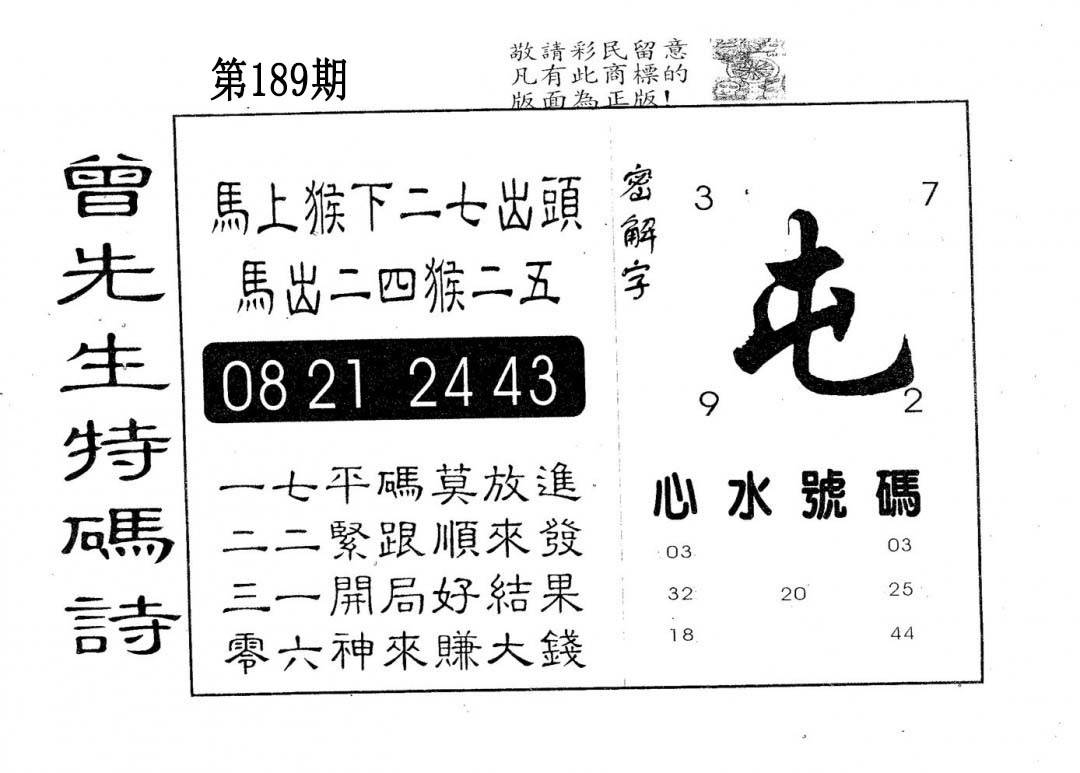 第189期
敬請彩民留意
凡有此商標的
版面為正版!
曾先生特碼詩
馬上猴下二七出頭
馬出二四猴二五
08 21 24 43
一七平碼莫放進
二二緊跟順來發
三一開局好結果
零六神來賺大錢
密解字
3 7
屯
9 2
心水號碼
03 03
32 20 25
18 44